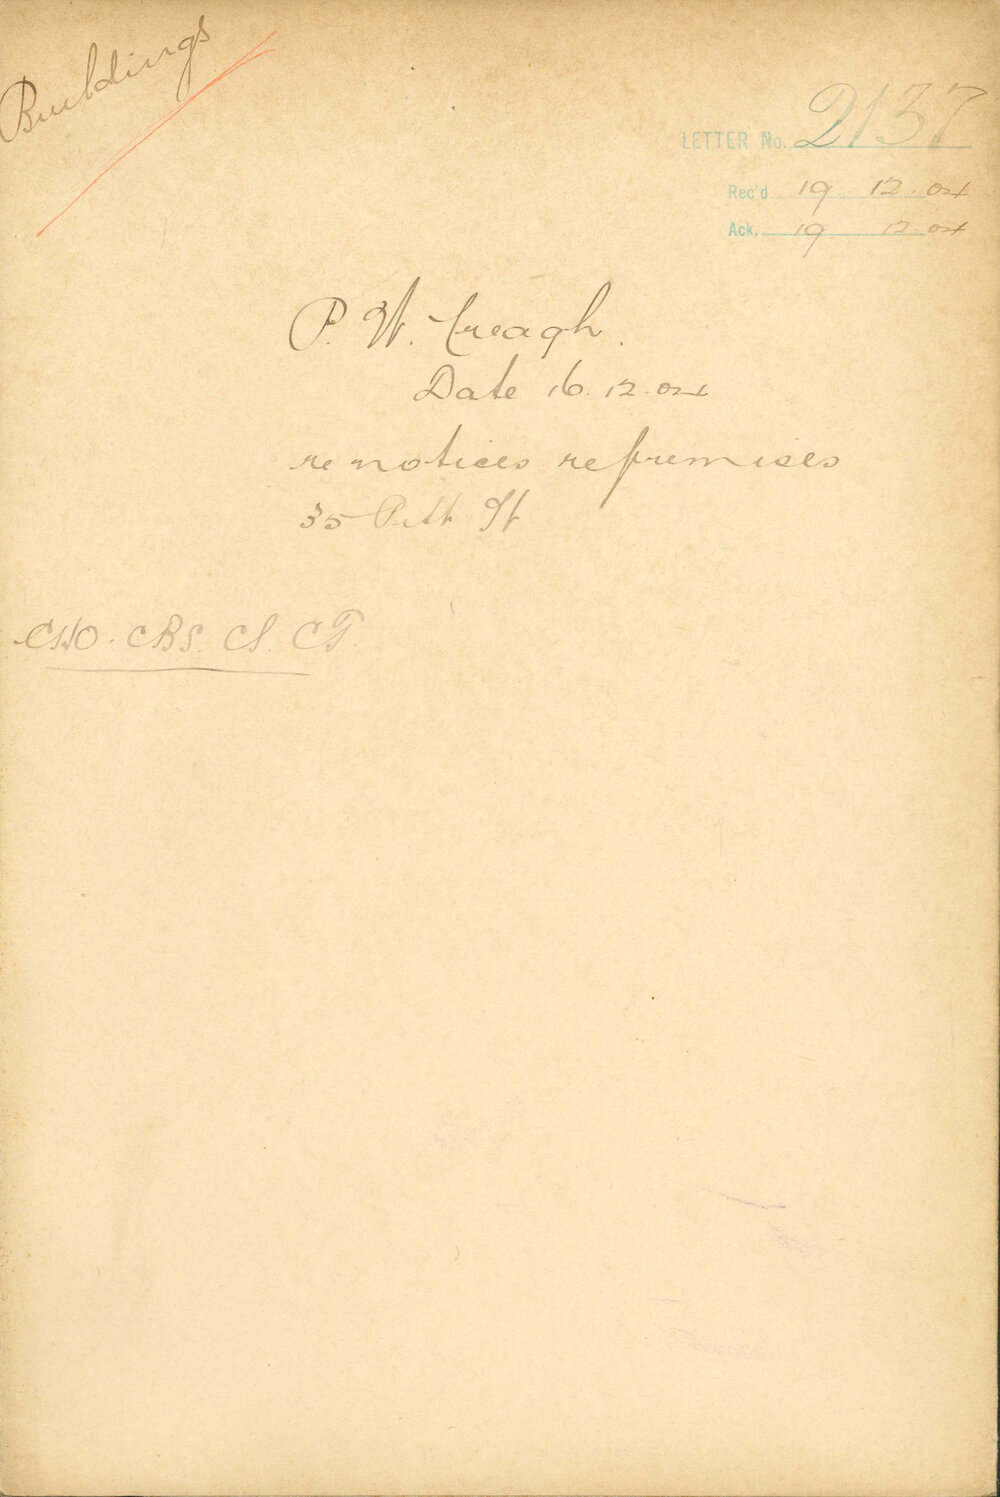 Buildings
LETTER No. 2137
Rec'd 19 12.04
Ack. 19 12.04
P. W. Creagh.
Date 16.12.04
re notices re premises
35 Pitt St
CHO. CBS. CS. CT.